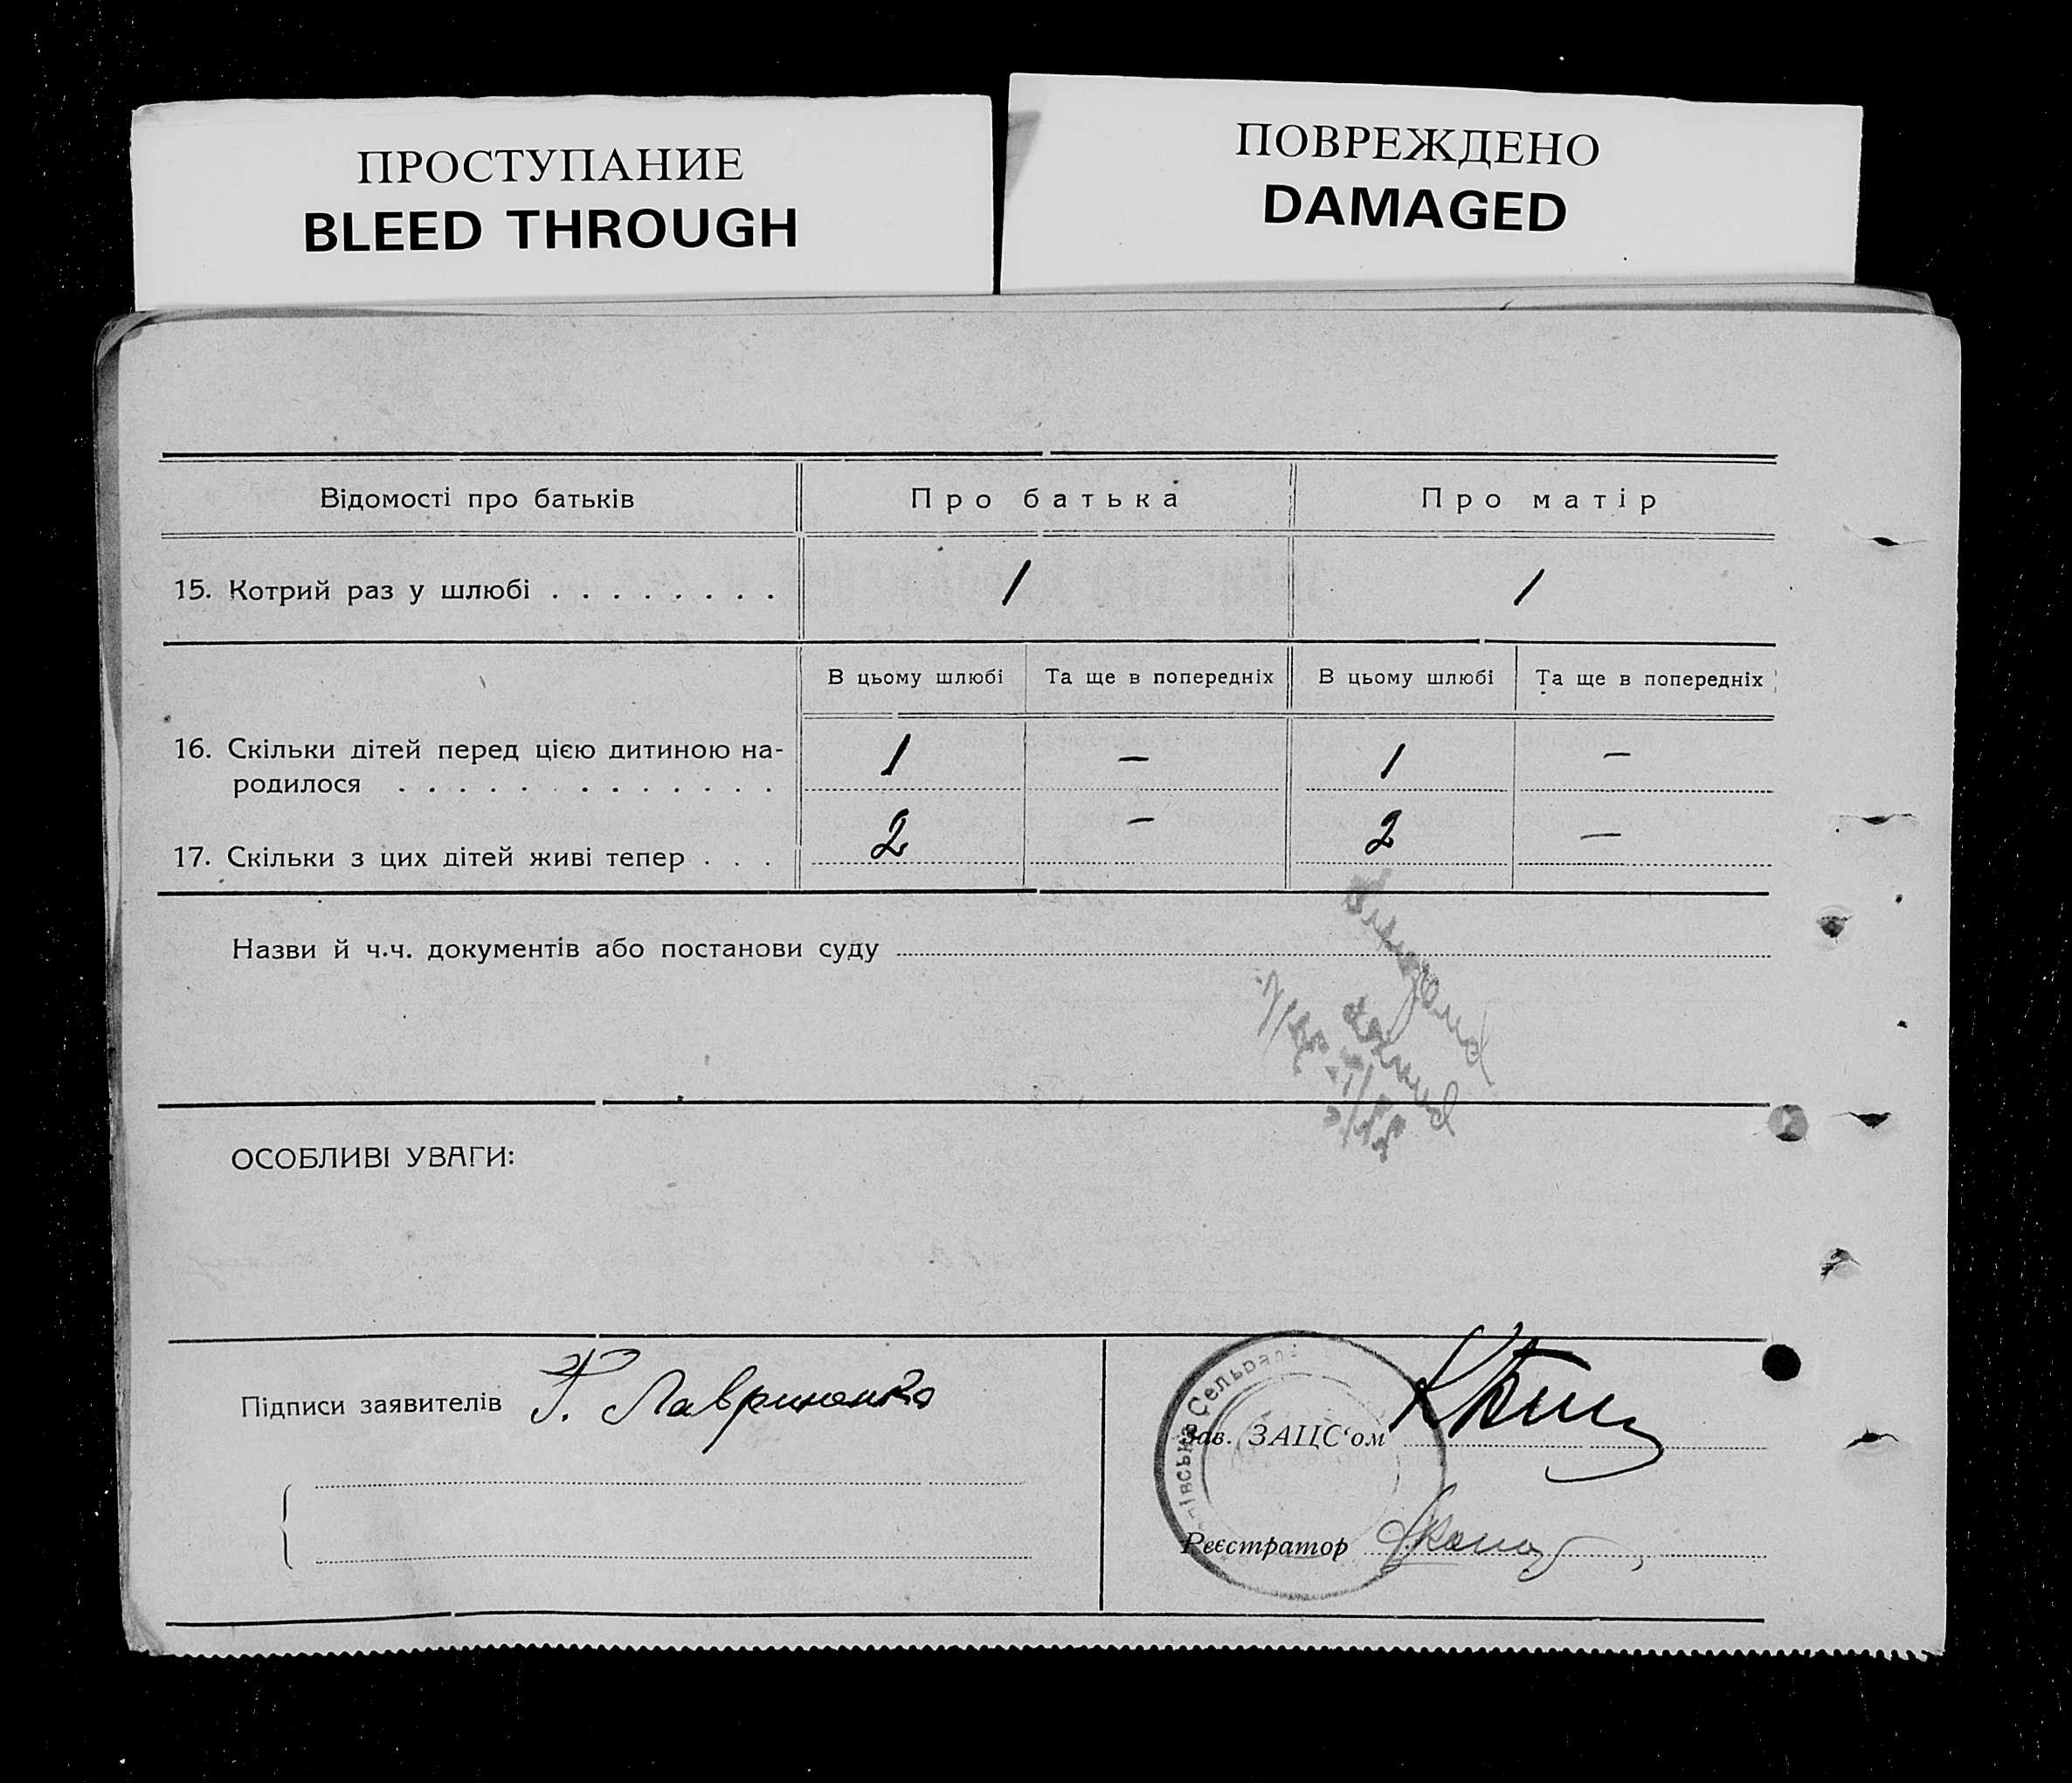 ПРОСТУПАНИЕ
BLEED THROUGH
ПОВРЕЖДЕНО
DAMAGED
Відомості про батьків
Про батька
Про матір
15. Котрий раз у шлюбі . . . . . . . .
1
1
В цьому шлюбі
Та ще в попередніх
В цьому шлюбі
Та ще в попередніх
16. Скільки дітей перед цією дитиною на-
родилося . . . . . . . . . . . . .
1
—
1
—
17. Скільки з цих дітей живі тепер . . .
2
—
2
—
Назви й ч.ч. документів або постанови суду
ОСОБЛИВІ УВАГИ:
Підписи заявителів
Лавриненко
Сельрада
Зав. ЗАЦС‘ом
Реєстратор